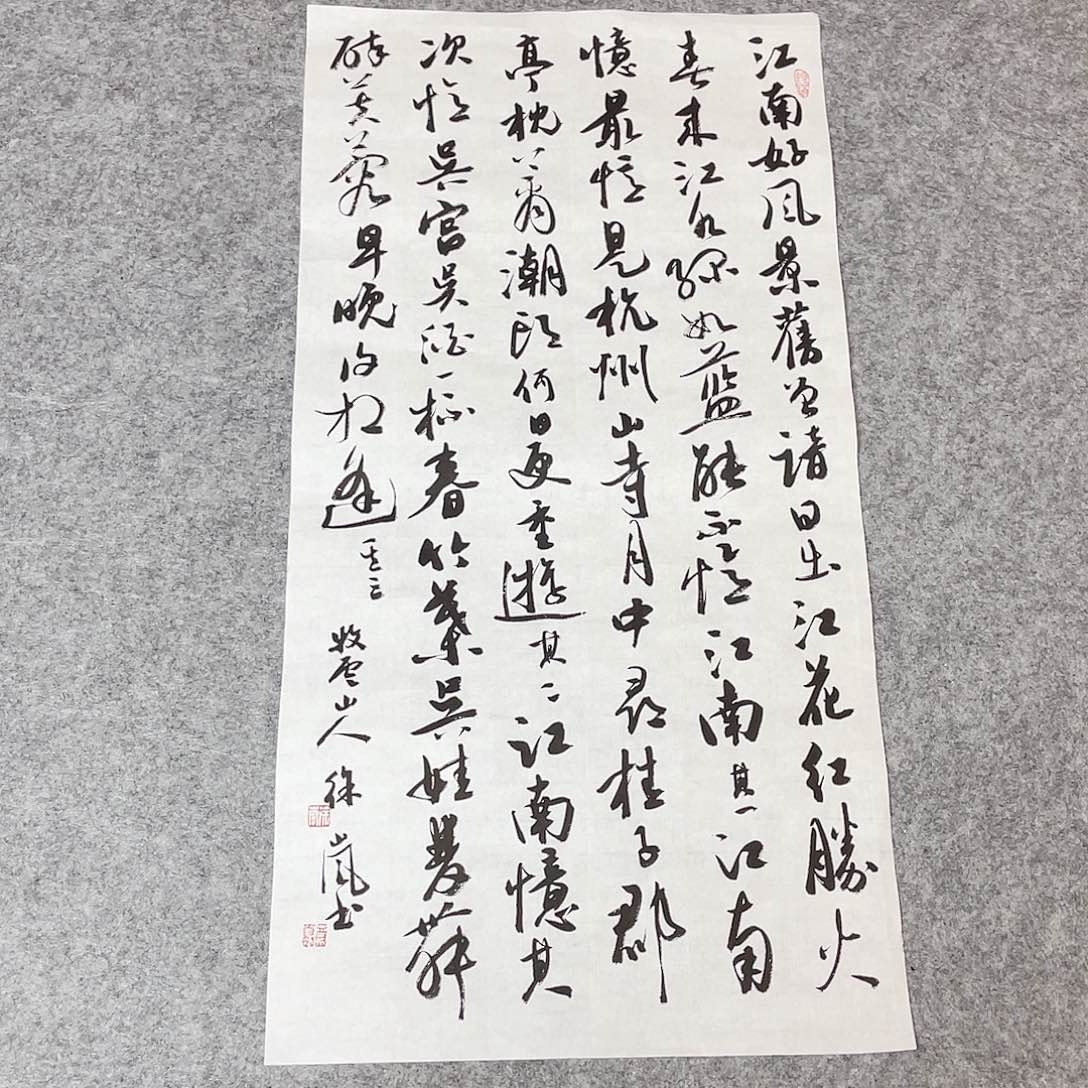 江南好風景舊曾諳日出江花紅勝火
春來江水綠如藍能不憶江南其一江南
憶最憶是杭州山寺月中尋桂子郡
亭枕上看潮頭何日更重遊其二江南憶其
次憶吳宮吳酒一杯春竹葉吳娃雙舞
醉芙蓉早晚復相逢其三
牧雲山人徐嵐書